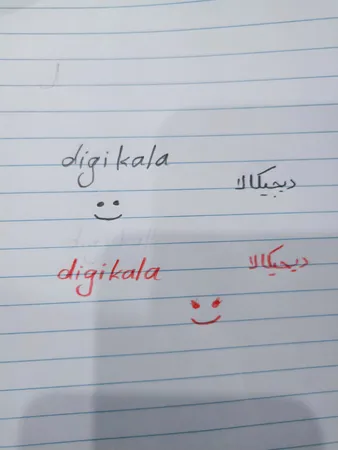 digikala
دیجیکالا
digikala
دیجیکالا